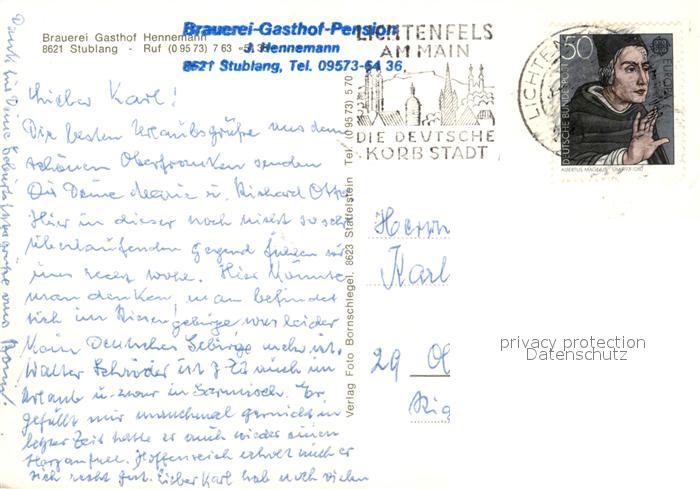 Brauerei Gasthof Hennemann
8621 Stublang - Ruf (0 95 73) 7 63
Brauerei-Gasthof-Pension
J. Hennemann
8621 Stublang, Tel. 09573-64 36
LICHTENFELS
AM MAIN
DIE DEUTSCHE
KORBSTADT
LICHTEN
50
DEUTSCHE BUNDESPOST
EUROPA
ALBERTUS MAGNUS
Lieber Karl!
Die besten Urlaubsgrüße aus dem
schönen Oberfranken senden
Dir Deine Marie u. Richard Otto
Hier in dieser noch nicht so sehr
überlaufenden Gegend fühlen wir
uns recht wohl. Hier könnte
man denken, man befindet
sich im Riesengebirge was leider
kein Deutsches Gebirge mehr ist.
Walter Schröder ist z. Zt auch im
Urlaub u. zwar in Garmisch. Er
gefällt mir manchmal garnicht in
letzter Zeit hatte er auch wieder einen
Herzanfall. Hoffentlich erholt auch er
sich recht gut. Lieber Karl hab noch vielen
Dank für Deine Geburtstagsgrüße aus
Verlag Foto Bornschlegel, 8623 Staffelstein Tel. (0 95 73) 5 70
Herrn
Karl
29 Ol
privacy protection
Datenschutz